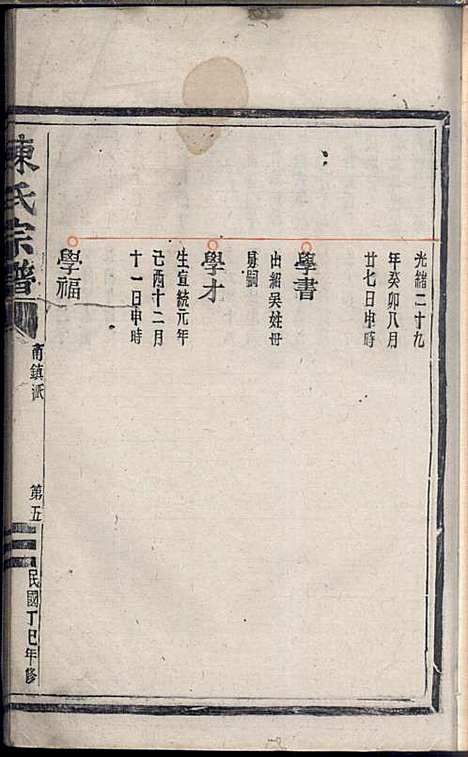 光緒二十九
年癸卯八月
廿七日申時
學書
出紹吳姓毌
舅嗣
學才
生宣統元年
己酉十二月
十一日申時
學福
陳氏宗譜
甯鎮派
第五
民國丁巳年修